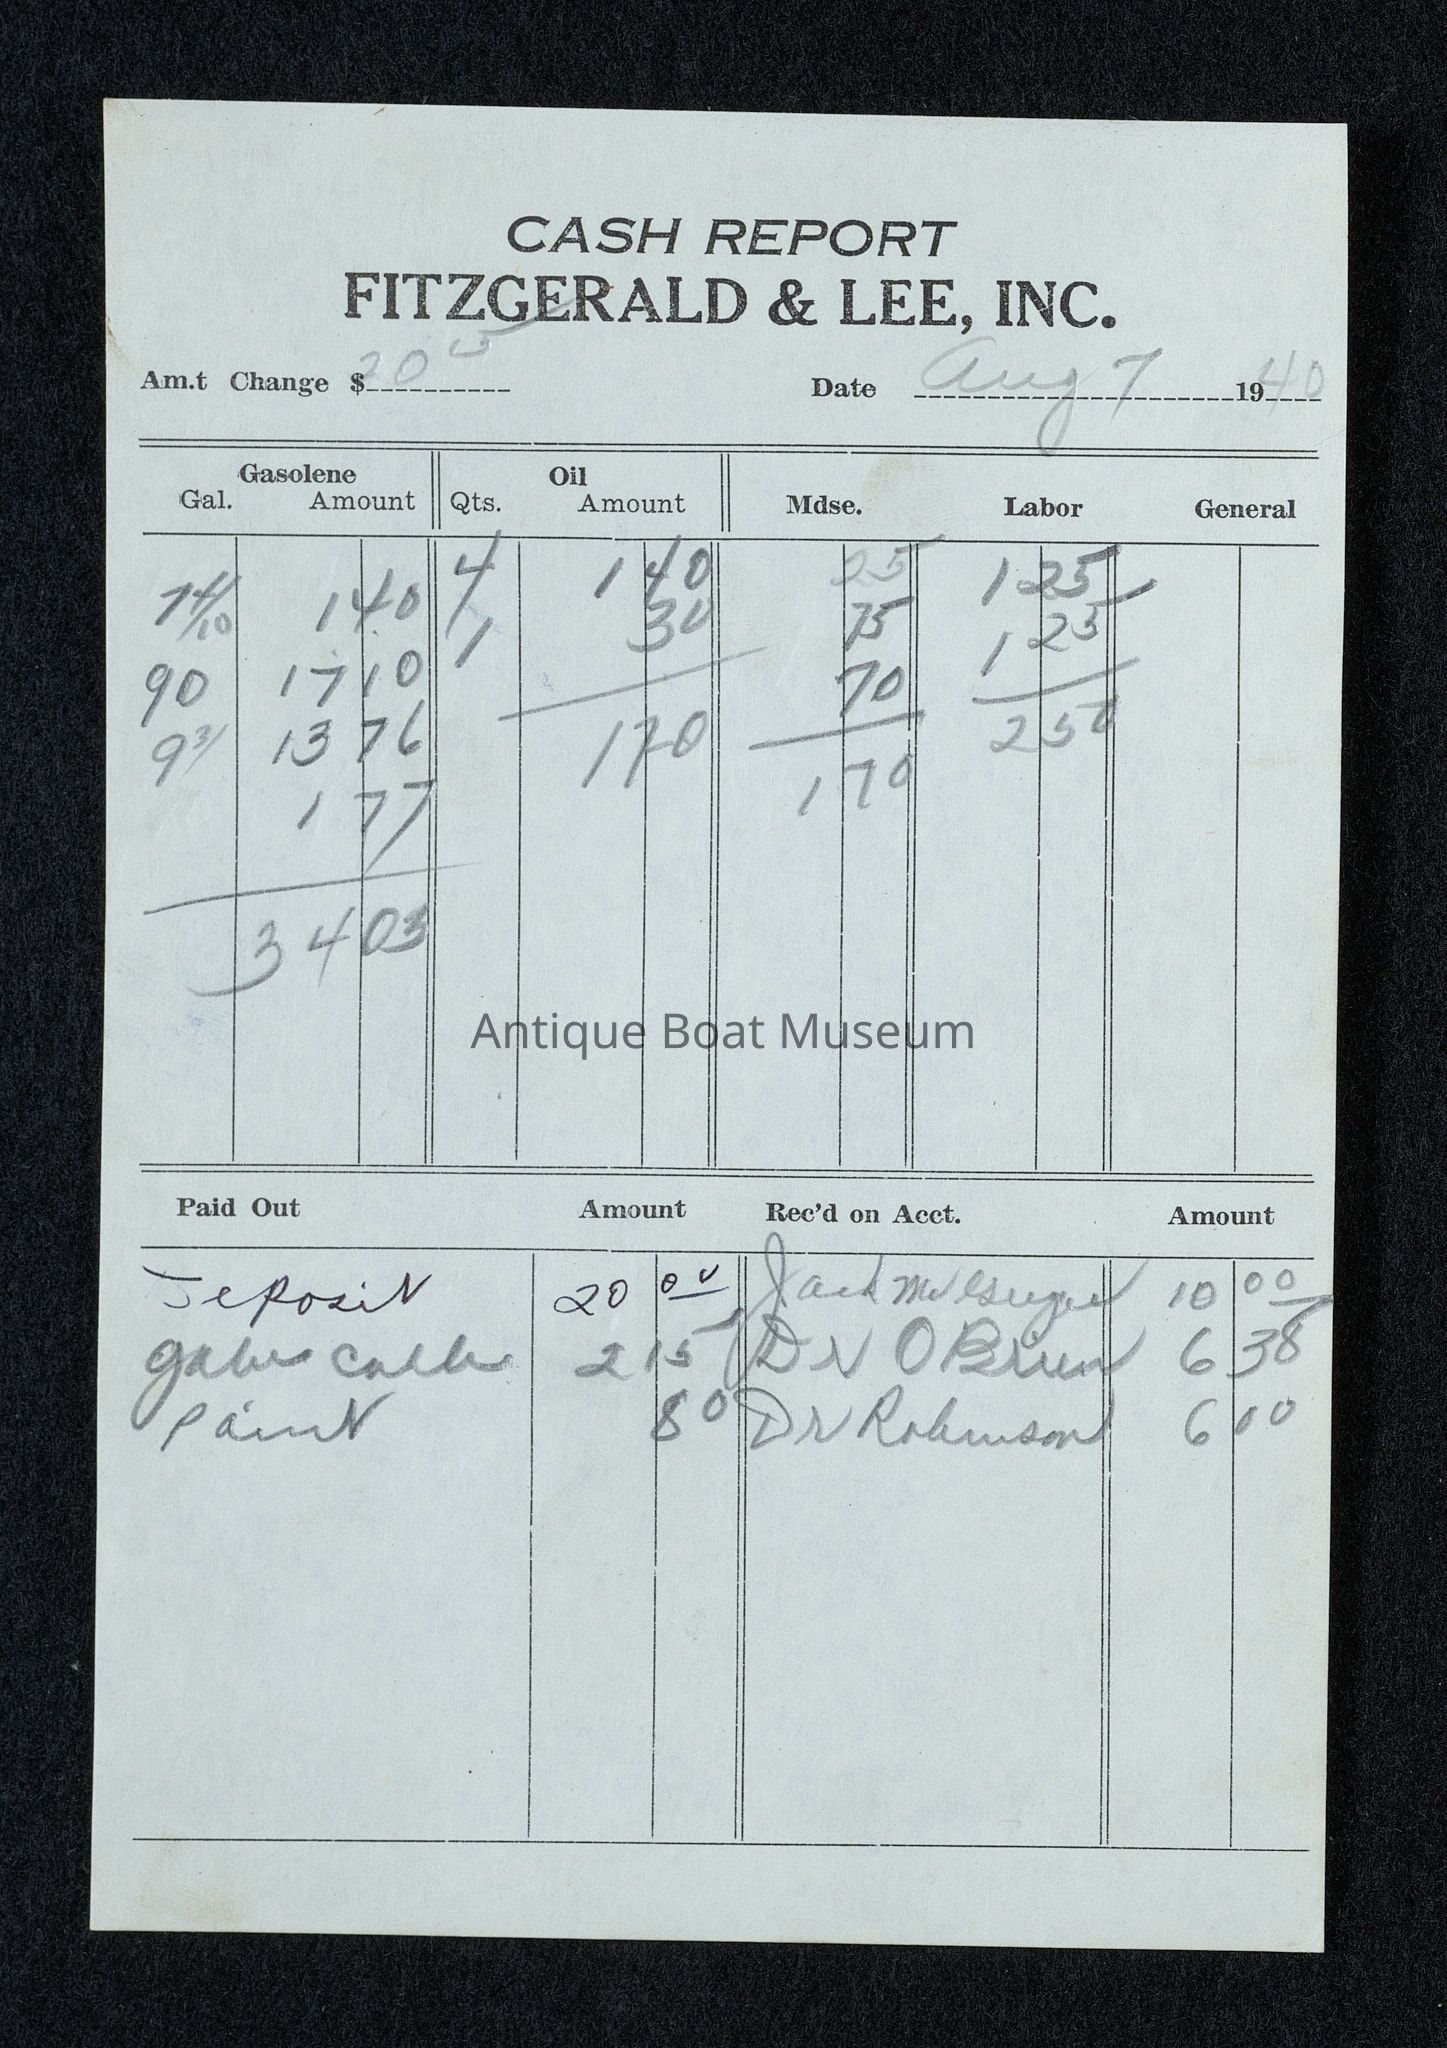 CASH REPORT
FITZGERALD & LEE, INC.
Am.t Change $ 20 5 Date Aug 7 1940
Gasolene Oil
Gal. Amount Qts. Amount Mdse. Labor General
7 4/10 1 40 4 1 40 25 1 25
90 17 10 1 30 75 1 25
9 3/ 13 76 1 70 70 2 50
1 77 1 70
34 03
Antique Boat Museum
Paid Out Amount Rec'd on Acct. Amount
Deposit 20 00 Jack 10 00
2 15 Dr O Brien 6 38
Paint 80 Dr Robinson 6 00